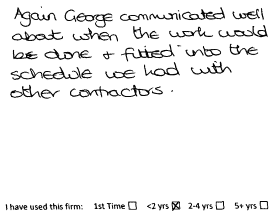 Again George communicated well
about when the work would
be done + fitted into the
schedule we had with
other contractors.
I have used this firm: 1st Time ☐ <2 yrs ☒ 2-4 yrs ☐ 5+ yrs ☐